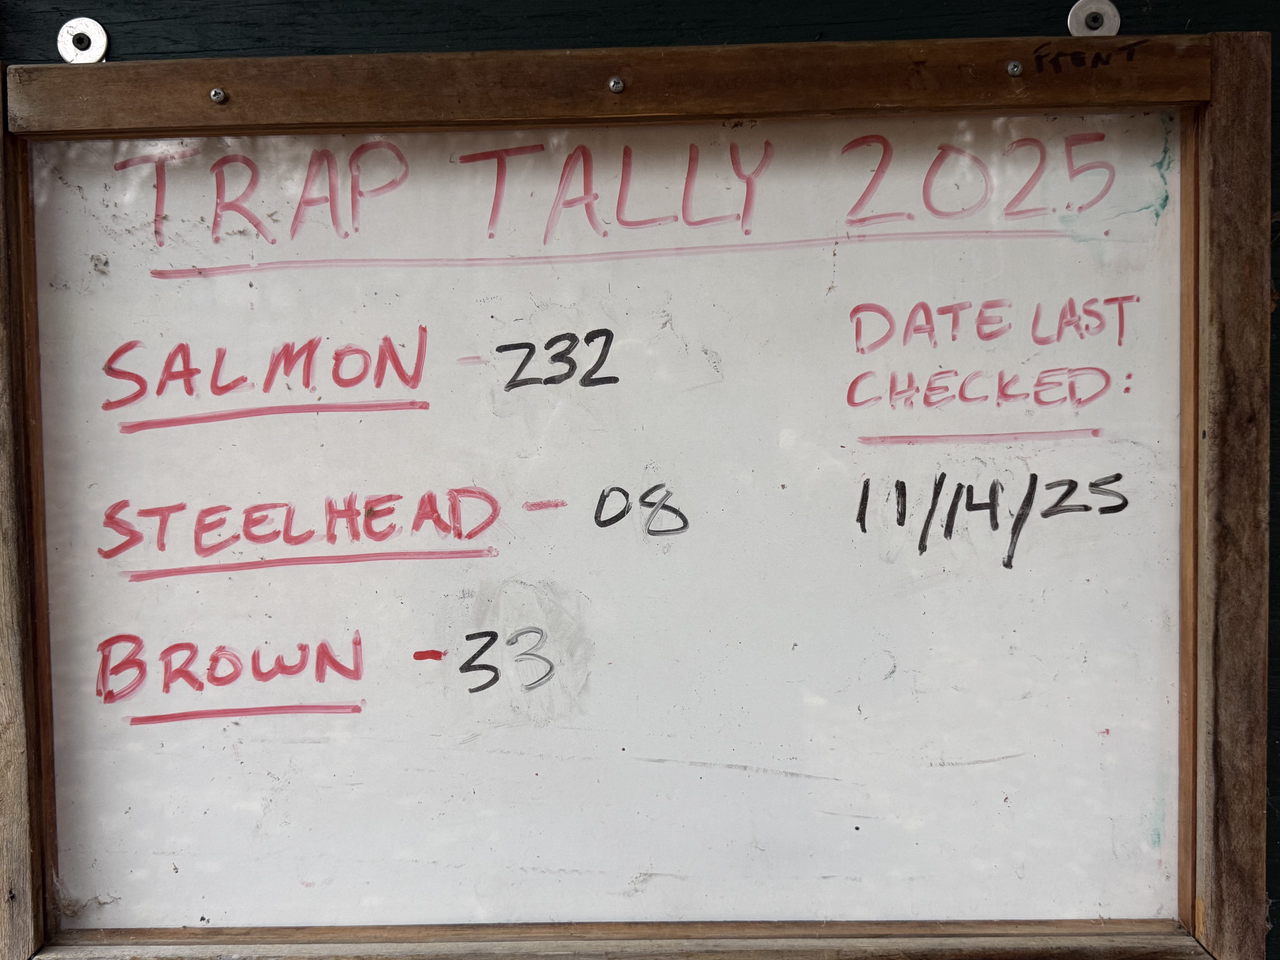 FRONT
TRAP TALLY 2025
SALMON - 232
DATE LAST
CHECKED:
STEELHEAD - 08
11/14/25
BROWN - 33